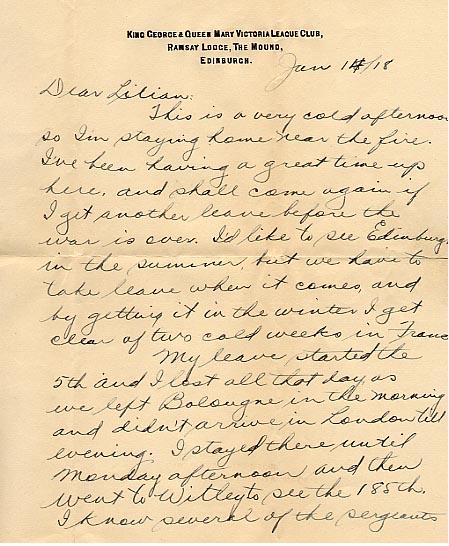 KING GEORGE & QUEEN MARY VICTORIA LEAGUE CLUB,
RAMSAY LODGE, THE MOUND,
EDINBURGH.
Jan 14/18
Dear Lilian:
This is a very cold afternoon
so I'm staying home near the fire.
I've been having a great time up
here, and shall come again if
I get another leave before the
war is over. I'd like to see Edinburg
in the summer, but we have to
take leave when it comes, and
by getting it in the winter I get
clear of two cold weeks in Franc
My leave started the
5th and I lost all that day as
we left Bolougne in the morning
and didn't arrive in London till
evening. I stayed there until
Monday afternoon and then
went to Witley to see the 185th.
I know several of the sergeants